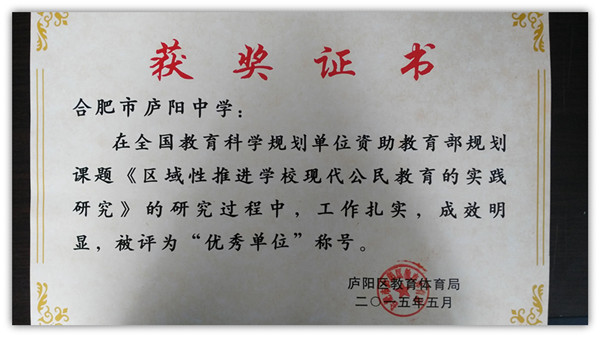 获奖证书
合肥市庐阳中学：
在全国教育科学规划单位资助教育部规划
课题《区域性推进学校现代公民教育的实践
研究》的研究过程中，工作扎实，成效明
显，被评为“优秀单位”称号。
庐阳区教育体育局
二〇一五年五月